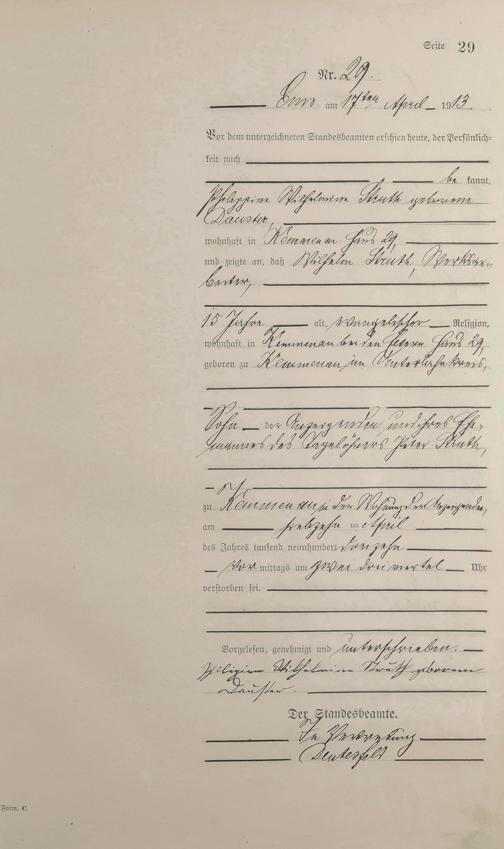 Seite 29
Nr. 29.
Ems am 17ten April 1913.
Vor dem unterzeichneten Standesbeamten erschien heute, der Persönlich-
keit nach
be kannt,
Philippine Wilhelmine Struth geborenen
Dauster,
wohnhaft in Kemmenau Haus 29,
und zeigte an, daß Wilhelm Struth, Werksar-
beiter,
15 Jahre alt, evangelischer Religion,
wohnhaft in Kemmenau bei den Eltern Haus 29,
geboren zu Kemmenau im Unterlahnkreis,
Sohn der Anzeigenden und ihres Ehe-
mannes des Tagelöhners Peter Struth,
zu Kemmenau, in der Wohnung der Anzeigenden,
am siebzehn ten April
des Jahres tausend neunhundert dreizehn
Vor mittags um zwei dreiviertel Uhr
verstorben sei.
Vorgelesen, genehmigt und unterschrieben.
Wilhelmine Struth geborenen
Dauster.
Der Standesbeamte.
In Vertretung
Form. C.